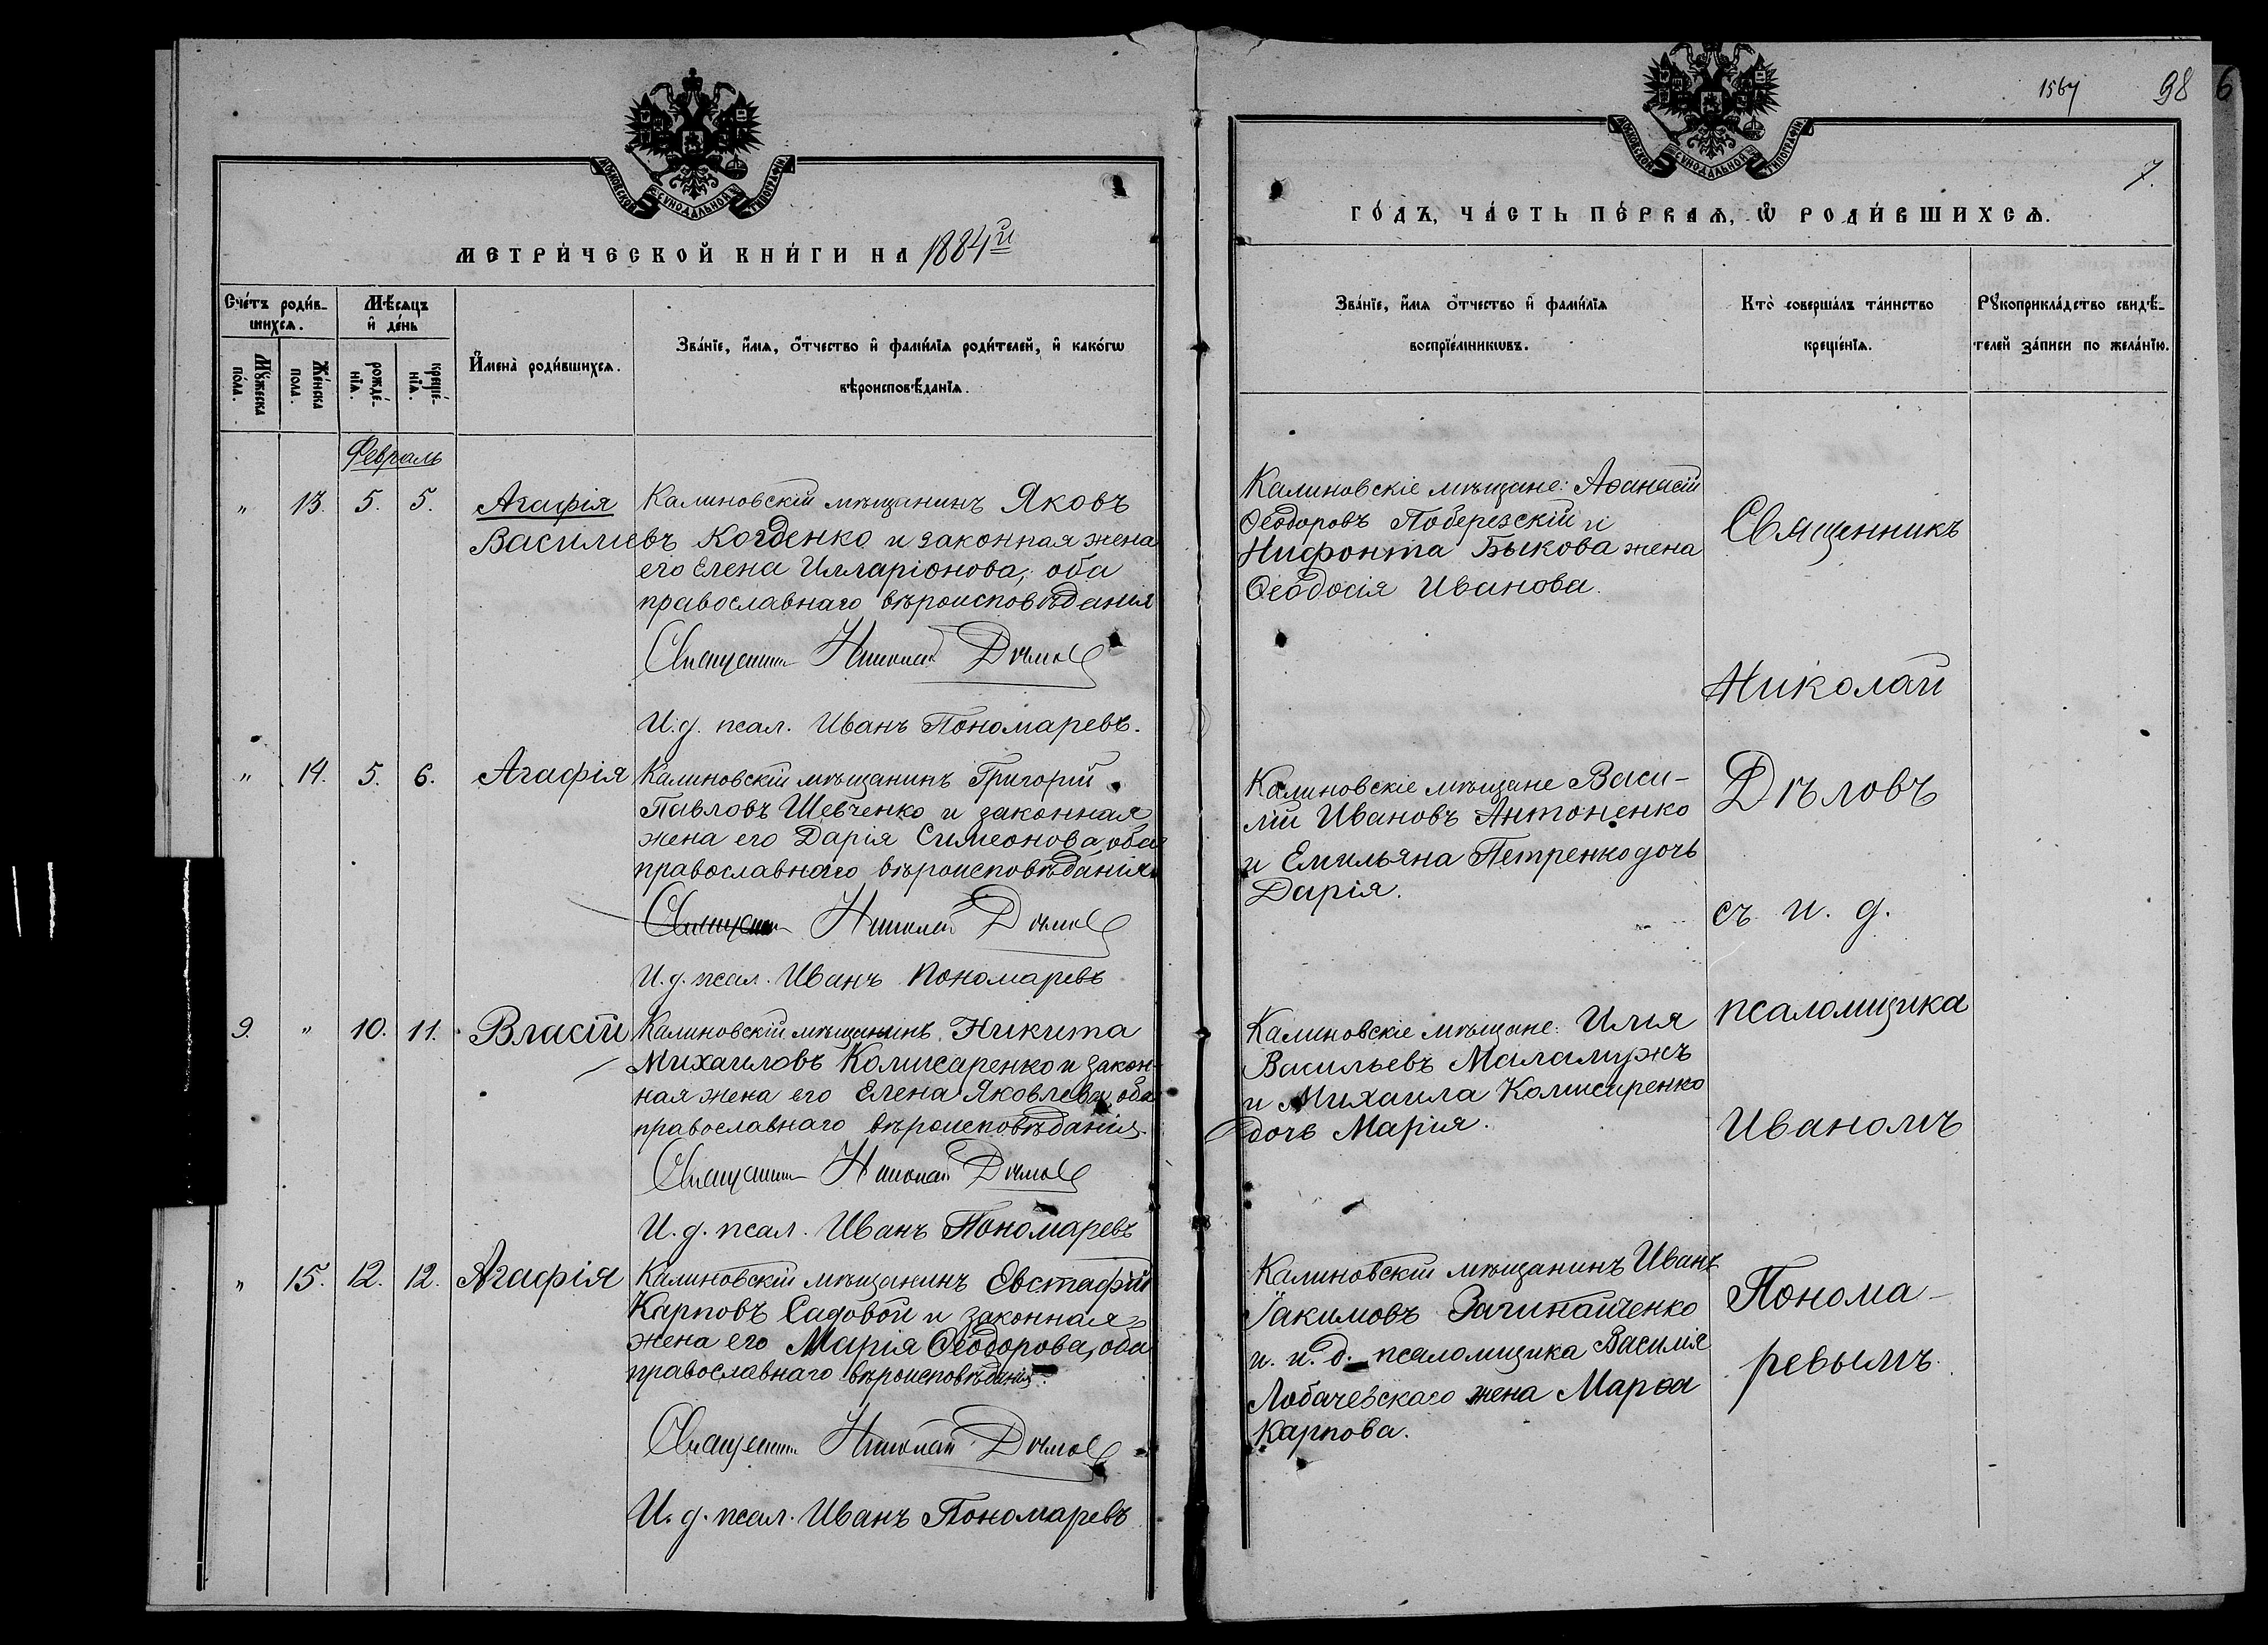 МОСКОВСКОЙ СУНОДАЛЬНОЙ ТИПОГРАФІИ
МЕТРИ́ЧЕСКОЙ КНИ́ГИ НА 1884й
Сче́тъ роди́в-
шихсѧ.
Мѣ́сѧцъ
и҆ де́нь
Мꙋ́жеска
по́ла.
Же́нска
пола.
рожде́-
нїѧ.
креще́-
нїѧ.
И҆мена̀ роди́вшихсѧ.
Зва́нїе, и҆́мѧ, ѻ҆́тчество и҆ фами́лїѧ роди́телей, и҆ како́гѡ
вѣроисповѣ́данїѧ.
Февраль
„ 13. 5. 5. Агафія
Калиновскій мѣщанинъ Яковъ
Василиевъ Когденко и законная жена
его Елена Илларіонова, оба
православнаго вѣроисповѣданія
Священникъ Николай Дѣловъ
И. д. псал. Иванъ Пономаревъ.
„ 14. 5. 6. Агафія
Калиновскій мѣщанинъ Григорій
Павловъ Шевченко и законная
жена его Дарія Симеонова, оба
православнаго вѣроисповѣданія
Священникъ Николай Дѣловъ
И. д. псал. Иванъ Пономаревъ
9. „ 10. 11. Власій
Калиновскій мѣщанинъ Никита
Михаиловъ Комисаренко и закон-
ная жена его Елена Яковлева, оба
православнаго вѣроисповѣданія.
Священникъ Николай Дѣловъ
И. д. псал. Иванъ Пономаревъ
„ 15. 12. 12. Агафія
Калиновскій мѣщанинъ Евстафій
Карповъ Садовой и законная
жена его Марія Ѳеодорова, оба
православнаго вѣроисповѣданія.
Священникъ Николай Дѣловъ
И. д. псал. Иванъ Пономаревъ
1567 98 6
7.
МОСКОВСКОЙ СУНОДАЛЬНОЙ ТИПОГРАФІИ
ГО́ДЪ, ЧА́СТЬ ПЕ́РВАѦ, Ѡ҆ РОДИ́ВШИХСѦ.
Зва́нїе, и҆́мѧ ѻ҆́тчество и҆ фами́лїѧ
воспрїе́мникѡвъ.
Кто̀ соверша́лъ та́инство
креще́нїѧ.
Рꙋкоприкла́дство свидѣ́-
телей за́писи по жела́нїю.
Калиновскіе мѣщане: Аѳанасій
Ѳеодоровъ Поберезскій и
Нифонта Быкова жена
Ѳеодосія Иванова.
Калиновскіе мѣщане Васи-
лій Ивановъ Антоненко
и Емильяна Петренко дочь
Дарія.
Калиновскіе мѣщане: Илія
Васильевъ Маламужъ
и Михаила Комисаренко
дочь Марія.
Калиновскій мѣщанинъ Иванъ
Іакимовъ
и и. д. псаломщика Василія
Лобачевскаго жена Марѳа
Карпова.
Священникъ
Николай
Дѣловъ
съ и. д.
псаломщика
Иваномъ
Понома-
ревымъ.